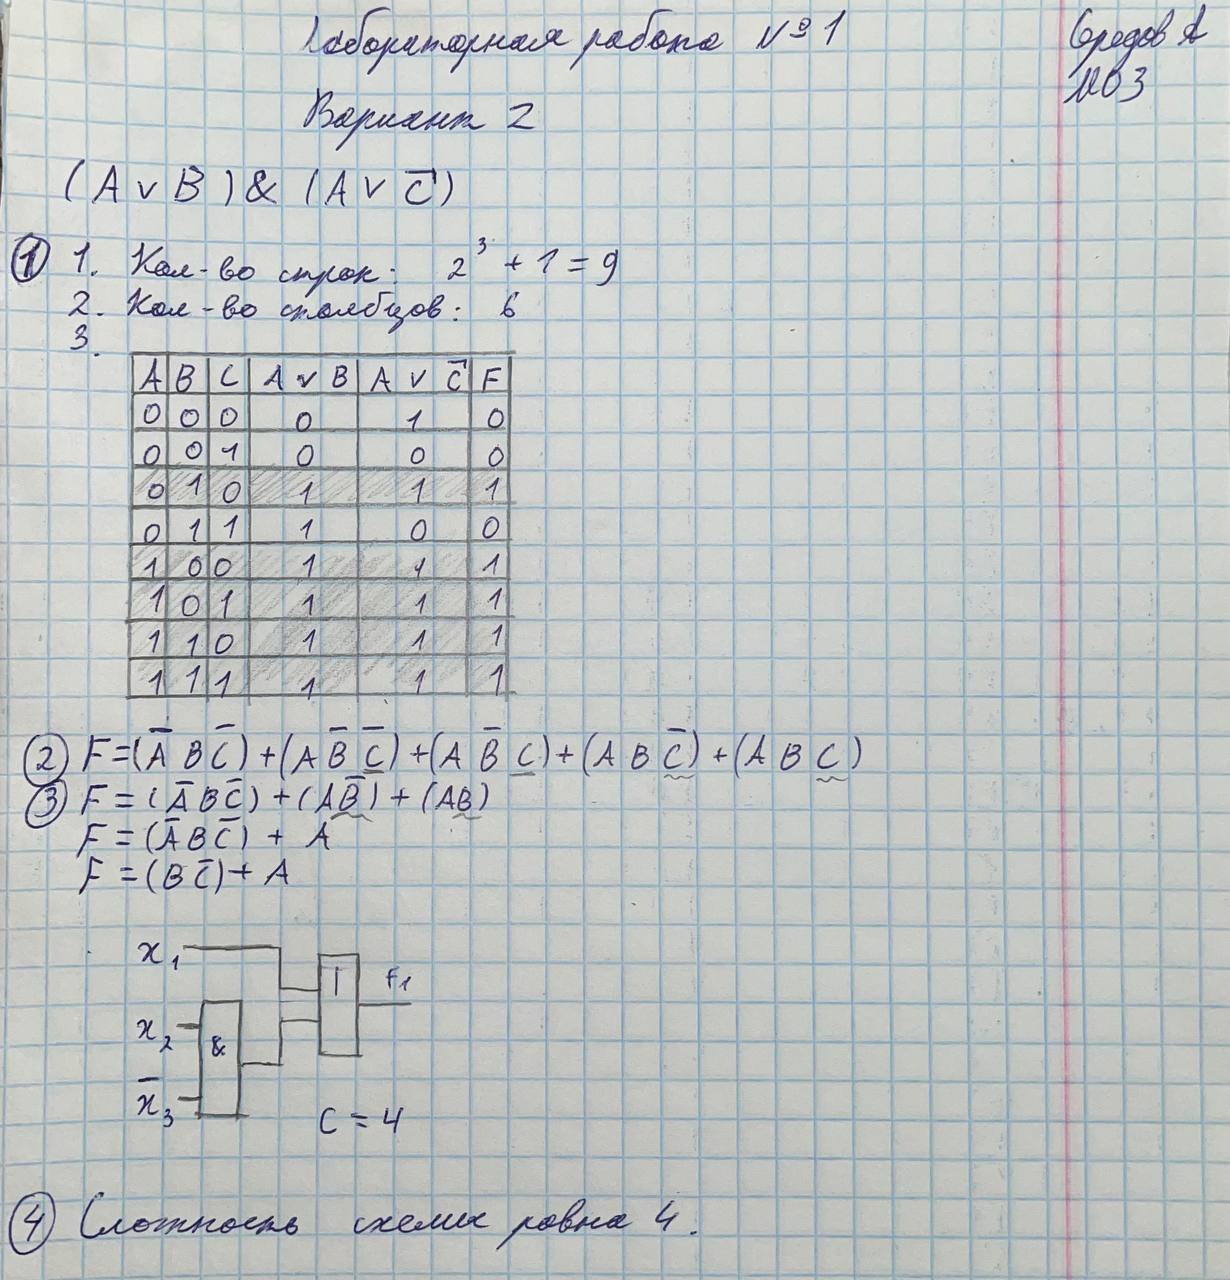 Лабораторная работа №1
Средов А
Вариант 2
(A ∨ B) & (A ∨ C̅)
① 1. Кол-во строк: 2³ + 1 = 9
2. Кол-во столбцов: 6
3.
A B C A ∨ B A ∨ C̅ F
0 0 0 0 1 0
0 0 1 0 0 0
0 1 0 1 1 1
0 1 1 1 0 0
1 0 0 1 1 1
1 0 1 1 1 1
1 1 0 1 1 1
1 1 1 1 1 1
② F=(A̅ B C̅)+(A B̅ C̅)+(A B̅ C)+(A B C̅)+(A B C)
③ F=(A̅ B C̅)+(A B̅)+(AB)
F=(A̅ B C̅) + A
F=(B C̅)+ A
x₁
1 F₁
x₂
&
x̅₃
C = 4
④ Сложность схемы равна 4.